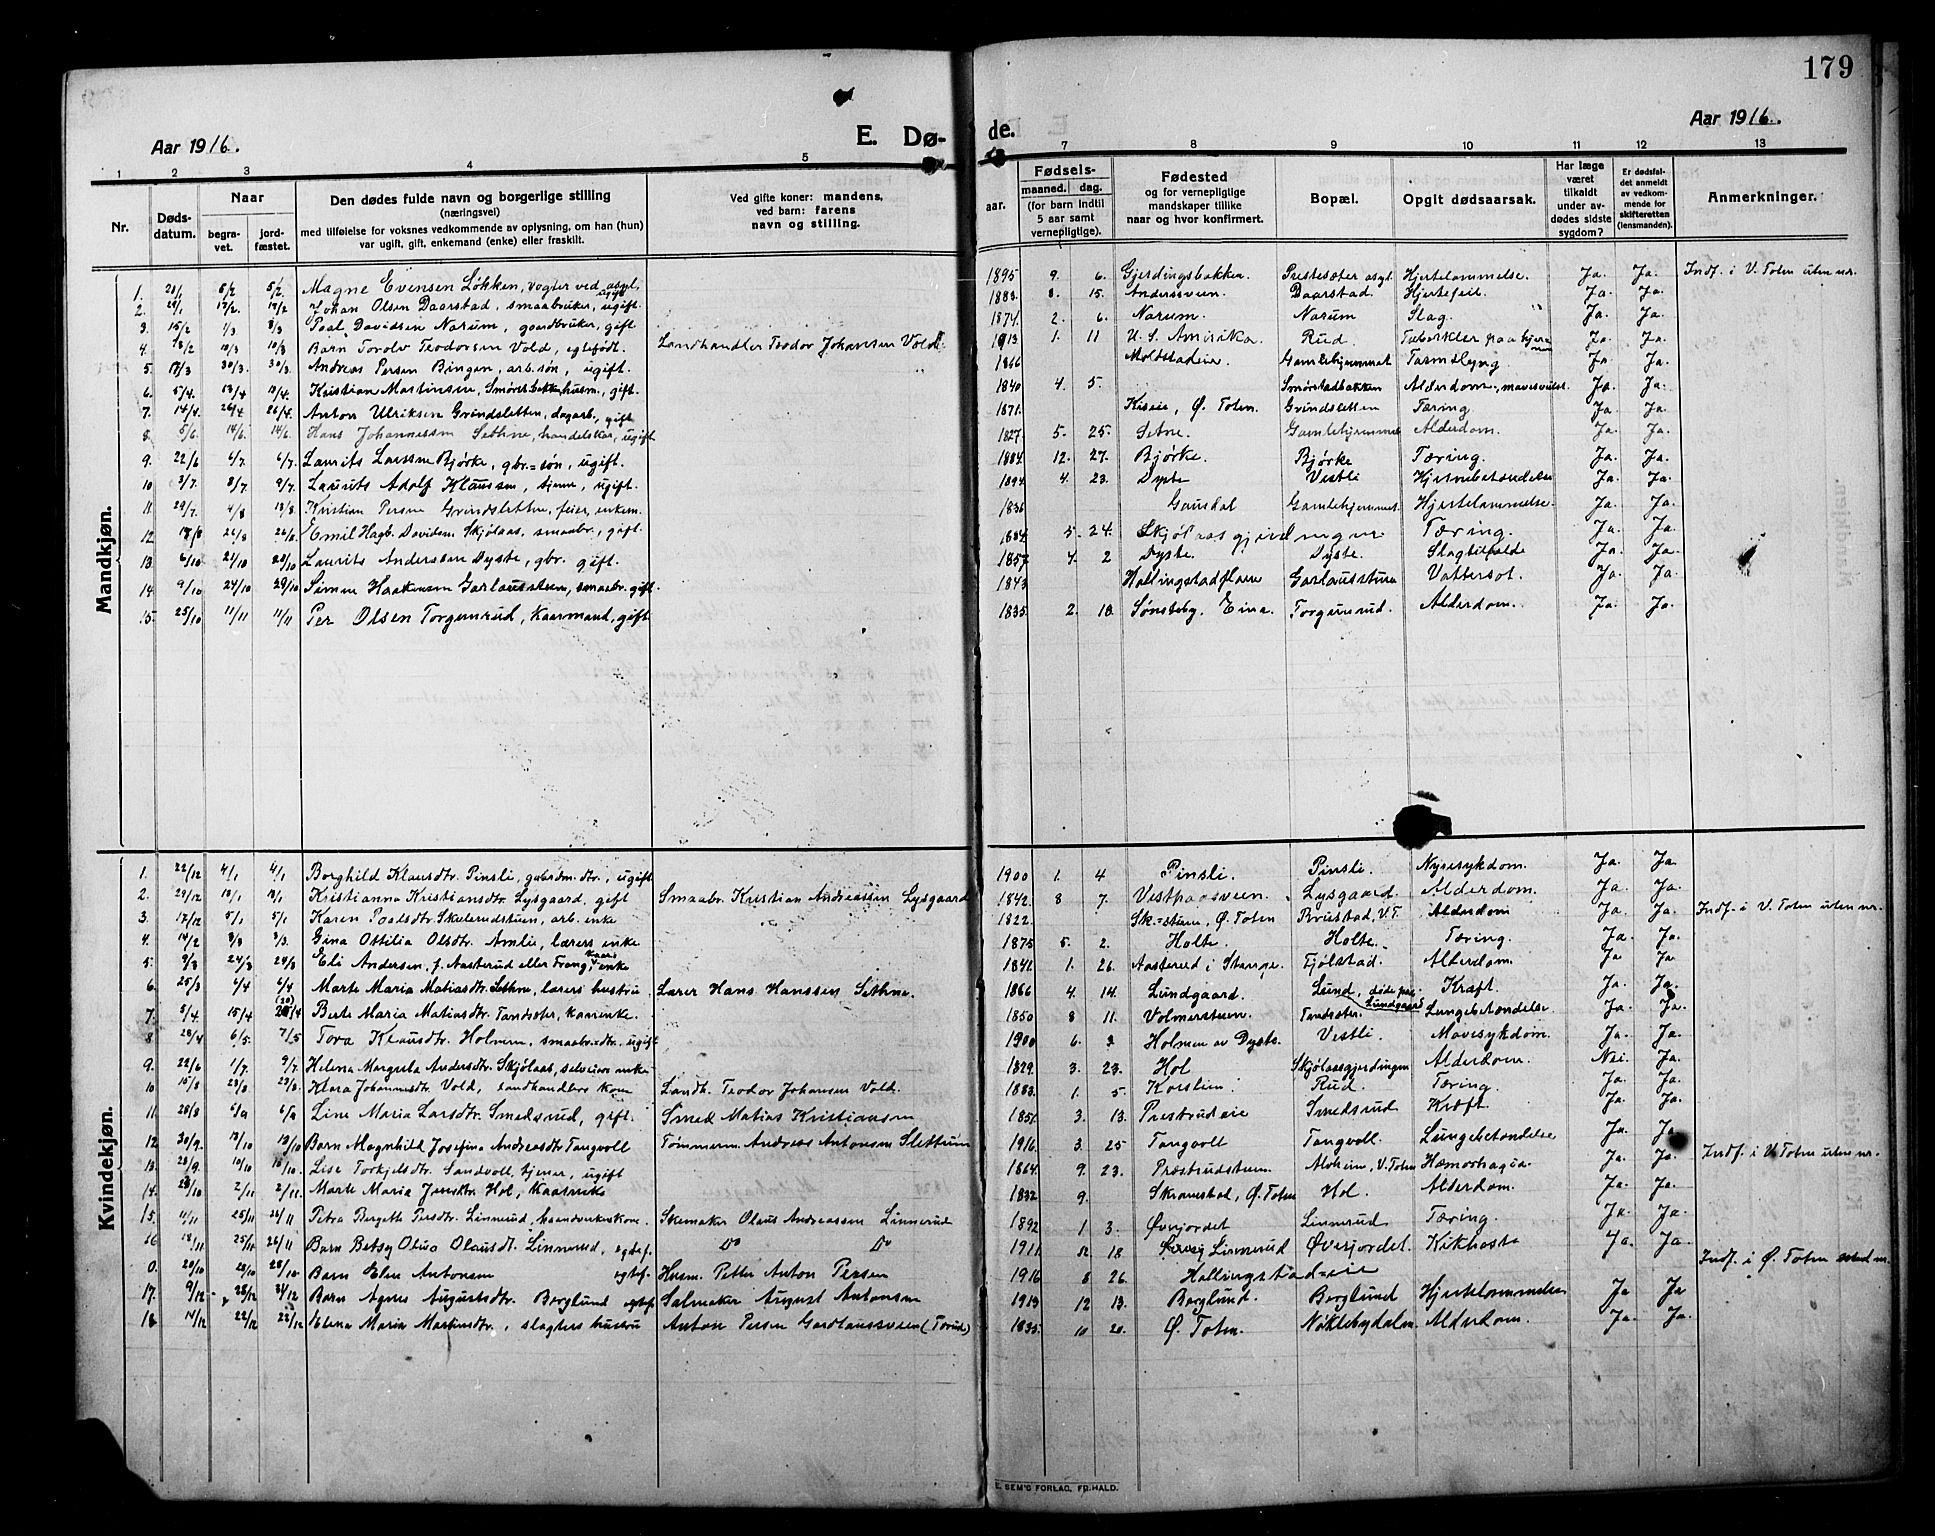 179
Aar 1916.
E. Dø-
de.
Aar 1916.
1 2 3 4 5 7 8 9 10 11 12 13
Nr.
Døds-
datum.
Naar
begra-
vet.
jord-
fæstet.
Den dødes fulde navn og borgerlige stilling
(næringsvei)
med tilføielse for voksnes vedkommende av oplysning, om han (hun)
var ugift, gift, enkemand (enke) eller fraskilt.
Ved gifte koner: mandens,
ved barn: farens
navn og stilling.
Fødsels-
aar.
maaned.
dag.
(for barn indtil
5 aar samt
vernepligtige).
Fødested
og for vernepligtige
mandskaper tillike
naar og hvor konfirmert.
Bopæl.
Opgit dødsaarsak.
Har læge
været
tilkaldt
under av-
dødes sidste
sygdom?
Er dødsfal-
det anmeldt
av vedkom-
mende for
skifteretten
(lensmanden).
Anmerkninger.
Mandkjøn.
1. 5/2 5/2. Magne Evensen Løkken, vogter ved asyl, ugift 1895 9. 6. Gjerdingsbakken. Prestesæter asyl. Hjertelammelse. Ja. Ja. Indf. i V. Toten uten nr.
2. 29/1 17/2. 17/2 Johan Olsen Daarstad, smaabruker, ugift. 1883. 8. 15. Anderssveen. Daarstad. Hjertefeil. Ja. Ja.
3. 15/2 1/3 8/3 Paal Davidsen Narum, gaardbruker, gift 1874. 2. 6. Narum. Narum Slag. Ja. Ja.
4. 28/2 10/3 10/3 Barn Torolv Teodorsen Vold, egtefødt. Landhandler Teodor Johansen Vold. 1913. 1. 11 U. S. Amerika. Rud. Tuberkler paa hjernen Ja. Ja.
5. 17/3 30/3 30/3. Andreas Persen Bingen, arb. søn, ugift. 1866 Moldstadeie. Gamlehjemmet Tarmslyng Ja. Ja.
6. 5/4. 13/4 13/4. Kristian Martinsen, Smørstbakken husm, gift. 1840 4. 5. Smørstadbakken Alderdom, mavesvulst. Ja. Ja.
7. 14/4. 26/4 26/4. Anton Ulriksen Grindsletten, dagarb, gift 1871. Kiseie, Ø. Toten. Grindsletten Tæring. Ja. Ja.
8. 5/6. 14/6. 14/6. Hans Johannessen Sethne, handelskar, ugift 1827. 5. 25. Setne. Gamlehjemmet Alderdom. Ja. Ja.
9. 22/6 6/7. 6/7. Laurits Larssen Bjørke, gbr.=søn, ugift. 1884. 12. 27. Bjørke. Bjørke Tæring. Ja. Ja.
10 3/7. 8/7 9/7. Laurits Adolf Klaussen, tjener, ugift. 1894 4. 23. Dyste Vestli Hjernebetændelse Ja. Ja.
11. 29/7. 4/8 13/8. Kristian Persen Grindsletten, feier, enkem. 1836 Gausdal Gamlehjemmet. Hjertelammelse. Ja. Ja.
12 18/8 26/8 26/8. Emil Hagb. Davidsen Skjølaas, smaabr., gift. 1884. 5. 24. Skjølaasgjerdingen Tæring. Ja. Ja
13. 6/10 21/10 22/10 Laurits Andersen Dyste, gbr. gift. 1857. 4. 2 Dyste. Dyste. Slagtilfælde Ja. Ja.
14. 9/10 24/10 29/10 Simen Haakensen Garlaussteen, smaabr. gift. 1843 Hallingstadflaen Garlausstuen Vattersot. Ja. Ja.
15. 25/10 11/11 11/11 Per Olsen Torgunrud, Kaarmand, gift 1835. 2. 10. Sønsteby. Eina. Torgunrud. Alderdom. Ja. Ja.
Kvindekjøn.
1. 22/12 4/1 4/1 Borghild Klausdtr. Pinsli, gaardm. dtr., ugift 1900 1. 4 Pinsli. Pinsli. Nyresykdom. Ja. Ja.
2. 29/12 13/1 13/1 Kristianna Kristiansdtr. Lysgaard, gift Smaabr. Kristian Andreassen Lysgaard 1842. 8 7. Lysgaard Alderdom. Ja. Ja.
3. 17/12 5/1 5/1 Karen Paalsdtr. Skelerudstuen, arb. enke 1822. Sk.=stuen, Ø. Toten V. T. Alderdom Ja. Ja. Indf. i V. Toten uten nr.
4. 14/2 3/3 3/3. Gina Ottilia Olsdtr. Amlie, lærers enke 1875 5. 2. Holte. Holte. Tæring. Ja. Ja.
5. 9/3 24/3 24/3 Eli Andersen, f. Aasterud eller Frang, kaarenke 1842 1. 26. Aasterud i Stange. Fjølstad. Alderdom. Ja Ja.
6. 25/3 6/4 6/4 Marte Maria Matiasdtr. Sethne, lærers hustru. Lærer Hans Hanssen Sethne. 1866 4. 14. Lundgaard. Lund, døde paa Lundgaard Kræft. Ja. Ja.
7. 5/4 15/4 (20) /4 Berte Maria Matiasdtr. Tandsæter, kaarenke. 1850 8 11. Volmerstuen. Tandsæter. Lungebetændelse Ja. Ja.
8 28/4 6/5. 7/5 Tora Klausdtr. Holmen, smaabr.dtr., ugift 1900 6. 3. Holmen av Dyste. Vestli Mavesykdom. Ja. Ja.
9. 22/6 1/7. 9/7. Helena Margrete Andersdtr. Skjølaas, selveiers enke 1829. 3. 23. Hol Skjølaasgjerdingen Alderdom. Nei. Ja.
10 15/8 23/8 23/8. Klara Johannesdtr. Vold, landhandlers kone Landh. Teodor Johansen Vold. 1883. 1. 5. Korslien. Rud. Tæring. Ja. Ja.
11. 28/8 6/9 6/9 Line Maria Larsdtr. Smedsrud, gift. Smed Matias Kristiansen 1851. 3. 13. Prestrudeie Smedsrud Kræft. Ja. Ja.
12. 30/9. 13/10 13/10 Barn Magnhild Josefina Andreasdtr Tangvoll Tømmerm. Andreas Antonsen Slettum 1916. 3. 25 Tangvoll Tangvoll. Lungebetændelse Ja. Ja
13. 28/9. 10/10 10/10. Lise Torkjelsdtr. Sandvoll, tjener, ugift 1864. 9. 23. Præstrudstuen. Aloheim, V. Toten Hæmorhagia Ja. Ja. Indf. i V. Toten uten nr.
14. 23/10 2/11 2/11. Marte Maria Hol, Kaarenke 1832 9. Skramstad, Ø. Toten Hol. Alderdom. Ja. Ja.
15. 11/11 25/11 26/11 Petra Bergette Persdtr. Linnerud, haandverkerskone. Skomaker Olaus Andreassen Linnerud 1892 1 3. Øverjordet Linnerud Tæring. Ja. Ja.
16 18/11 25/11 26/11 Barn Betsy Oliva Olausdtr. Linnerud, egtef. Do Do 1911 12 18. Linnerud Øverjordet. Kikhoste Ja. Ja.
0. 20/10 28/10 28/10. Barn Elen Antonsen egtef. Husm. Petter Anton Persen 1916 8 26. Hallingstad=eie Indf. i Ø. Toten med nr.
17. 9/12 28/12 31/12 Barn Agnes Augustsdtr. Berglund egtef. Salmaker August Antonsen 1913 12 13. Berglund. Berglund Hjertelammelse Ja Ja
18. 14/12 22/12 22/12 Elena Maria Martinsdtr., slagters hustru Anton Persen Gardlaussveen (Torud) 1835. 10 20. Ø. Toten. Nøklebydalen Alderdom. Ja. Ja.
E. SEM'S FORLAG, FR.HALD.